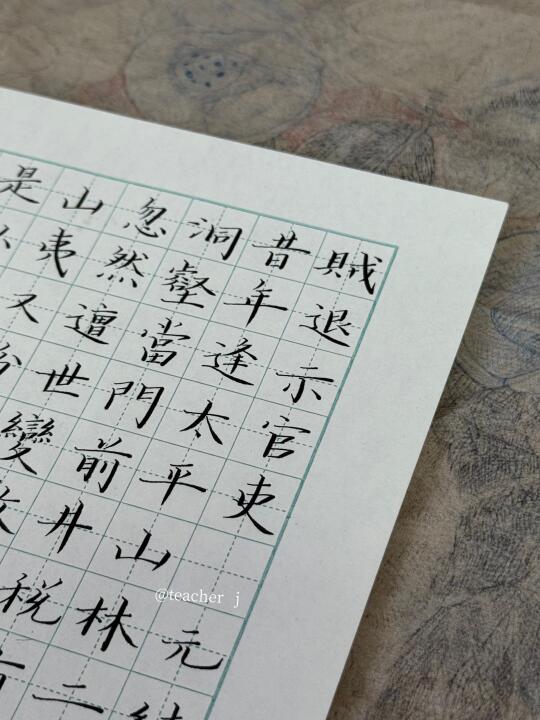 賊退示官吏 元結
昔年逢太平山林二
洞壑當門前井稅有
忽然遭世變數
山夷又紛
是
@teacher j